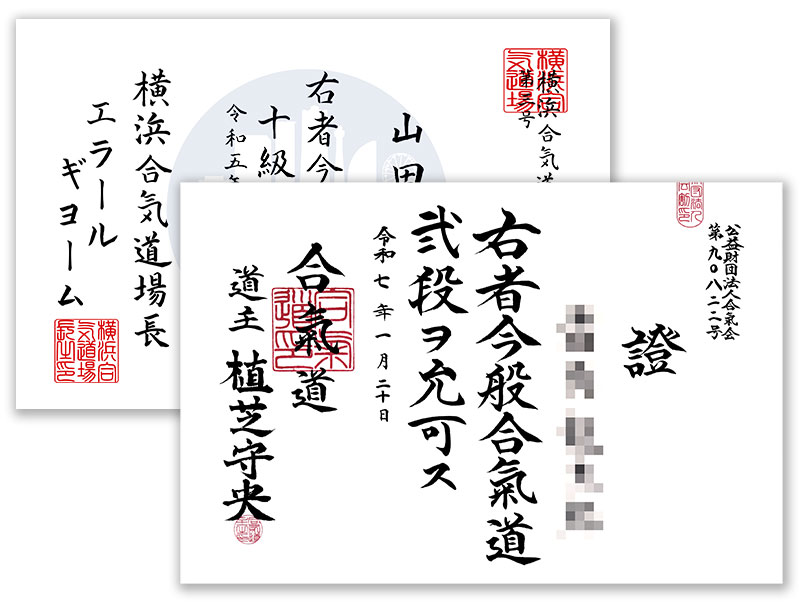 横浜合気道
号
山田
右者今
十級
令和五年
横浜合気道場長
エラール
ギヨーム
横浜合気道場
横浜合気道場長之印
公益財団法人合気会
第九〇八二二号
證
右者今般合氣道
弐段ヲ允可ス
令和七年一月二十日
合氣道
道主 植芝守央